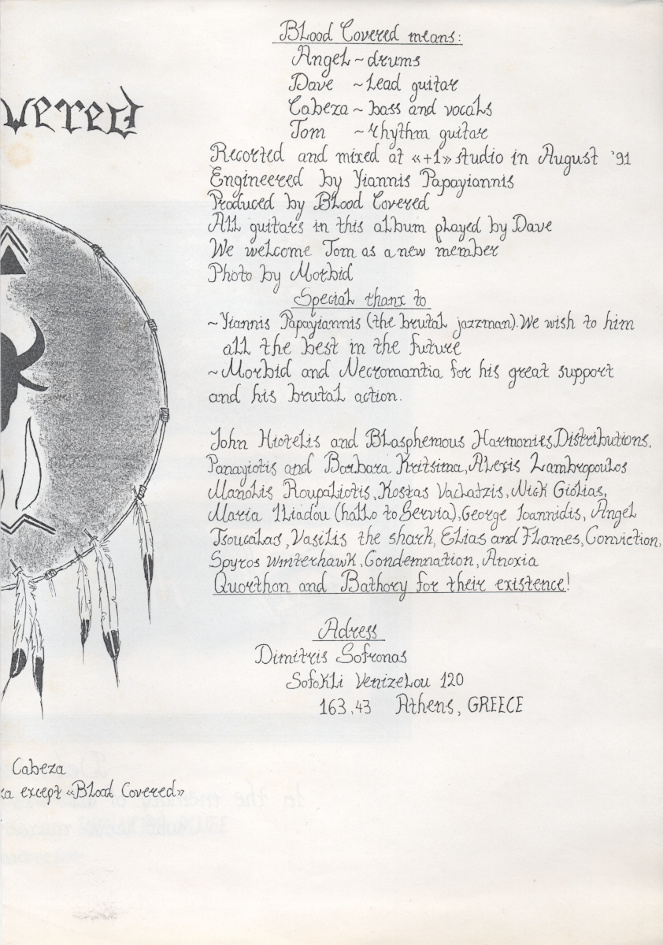 Blood Covered means:
Angel ~ drums
Dave ~ lead guitar
Cabeza ~ bass and vocals
Tom ~ rhythm guitar
Recorted and mixed at «+1» studio in August '91
Engineered by Yiannis Papayiannis
Produced by Blood Covered
All guitars in this album played by Dave
We welcome Tom as a new member
Photo by Morbid
Special thanx to
~Yiannis Papayiannis (the brutal jazzman). We wish to him
all the best in the future
~Morbid and Necromantia for his great support
and his brutal action.
John Hiotelis and Blasphemous Harmonies Distributions.
Panayiotis and Borbara Kritsima, Alexis Lambropoulos
Manolis Roupaliotis, Kostas Vachatzis, Nick Giolias,
Maria Iliadou (hallo to Servia), George Ioannidis, Angel
Tsoucalas, Vasilis the shark, Elias and Flames, Conviction,
Spyros Winterhawk, Condemnation, Anoxia
Quorthon and Bathory for their existence!
Adress
Dimitris Sofronas
Sofokli Venizelou 120
163.43 Athens, GREECE
vered
Cabeza
za except «Blood Covered»